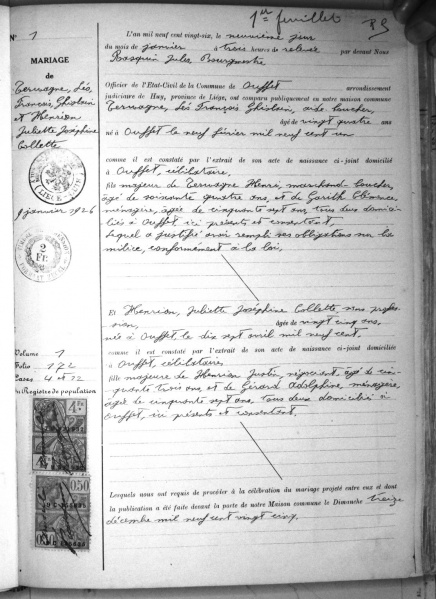 1er feuillet
N° 1
MARIAGE
de
Termogne, Léo
François, Ghislain
et Henrion
Juliette Joséphine
Collette
9 janvier 1926
2
FR
Volume 1
Folio 172
Cases 4 et
du Registre de population
L'an mil neuf cent vingt-six, le neuvième jour
du mois de janvier à trois heures de relevée par devant Nous
Bosquin Jules Bourgmestre
Officier de l'Etat-Civil de la Commune de Ouffet arrondissement
judiciaire de Huy, province de Liége, ont comparu publiquement en notre maison commune
Termogne, Léo François Ghislain, aide boucher,
âgé de vingt quatre ans
né à Ouffet le neuf février mil neuf cent un
comme il est constaté par l'extrait de son acte de naissance ci-joint domicilié
à Ouffet, célibataire,
fils majeur de Termogne Henri, marchand-boucher,
âgé de soixante quatre ans, et de Clémence,
ménagère, âgée de cinquante sept ans, tous deux domici-
liés à Ouffet, ici présents et consentant,
Lequel a justifié avoir rempli ses obligations sur la
milice, conformément à la loi,
Et Henrion, Juliette Joséphine Collette sans profes-
sion, âgée de vingt cinq ans,
née à Ouffet, le dix sept avril mil neuf cent.
comme il est constaté par l'extrait de son acte de naissance ci-joint domiciliée
à Ouffet, célibataire,
fille majeure de Henrion Justin, négociant, âgé de cin-
quante trois ans, et de Gérard Adolphine, ménagère,
âgée de cinquante sept ans, tous deux domiciliés à
Ouffet, ici présents et consentant.
Lesquels nous ont requis de procéder à la célébration du mariage projeté entre eux et dont
la publication a été faite devant la porte de notre Maison commune le Dimanche treize
décembre mil neuf cent vingt cinq.
0,50